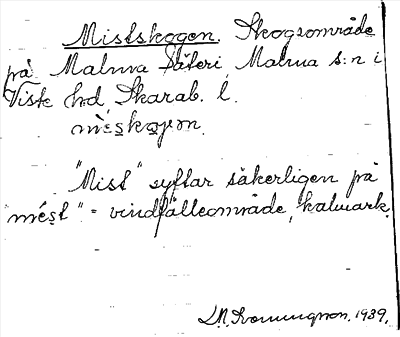 Mistskogen. Skogsområde
på Malma Säteri Malma s:n i
Viste hd, Skarab. l.
"Mist" syftar säkerligen på
"mést" = vindfälleområde, kalmark.
1939.